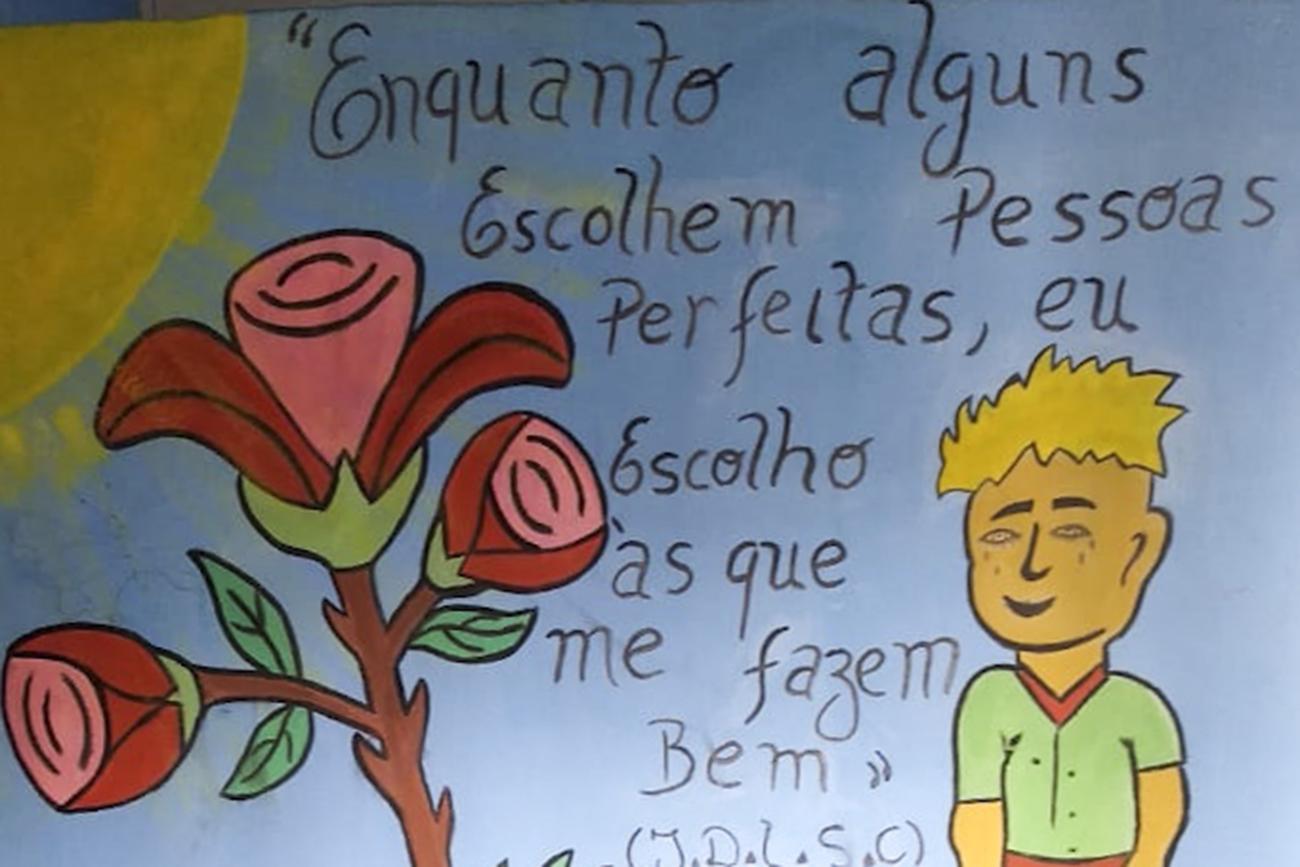 “Enquanto alguns
Escolhem Pessoas
Perfeitas, eu
Escolho
às que
me fazem
Bem»
(J.D.L.S.C)